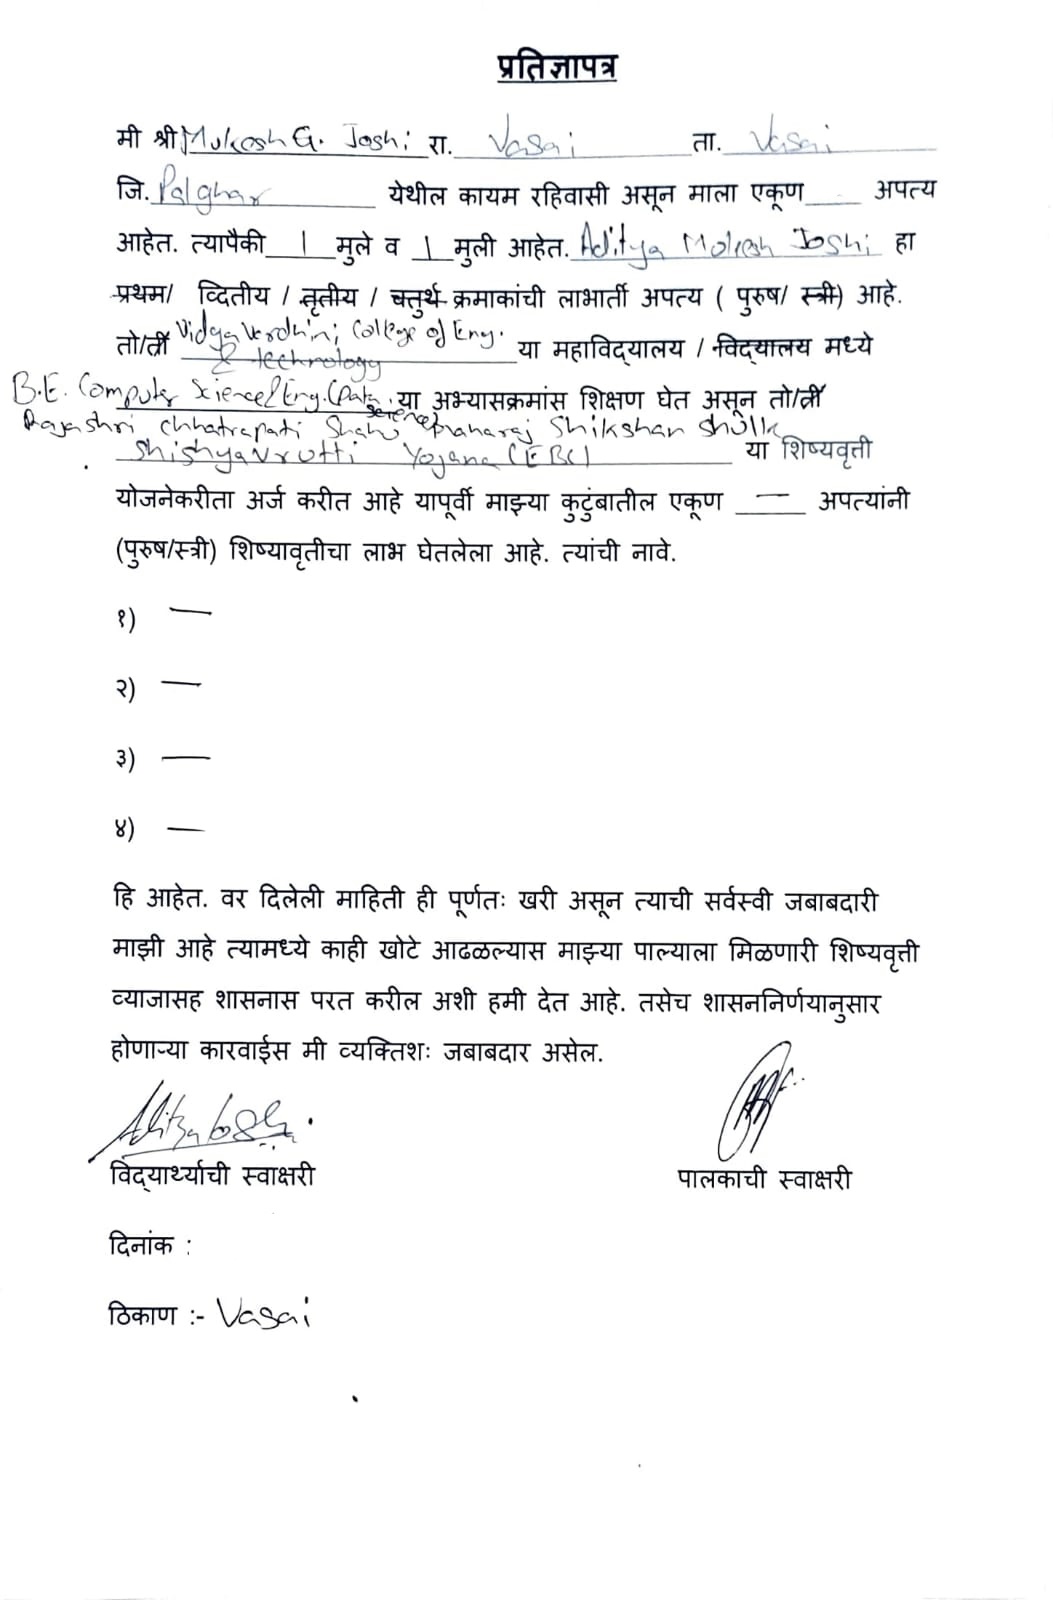 प्रतिज्ञापत्र
मी श्री Mukesh G. Joshi रा. Vasai ता. Vasai
जि. Palghar येथील कायम रहिवासी असून माला एकूण ___ अपत्य
आहेत. त्यापैकी 1 मुले व 1 मुली आहेत. Aditya Mukesh Joshi हा
प्रथम/ व्दितीय / तृतीय / चतुर्थ क्रमाकांची लाभार्ती अपत्य ( पुरुष/ स्त्री) आहे.
तो/ती Vidya Vardhini College of Eng.
& technology या महाविद्यालय / विद्यालय मध्ये
B.E. Computer Science/Eng. (Data science) या अभ्यासक्रमांस शिक्षण घेत असून तो/ती
Rajashri Chhatrapati Shahu maharaj Shikshan Shulk
Shishyavrutti Yojana (EBC) या शिष्यवृत्ती
योजनेकरीता अर्ज करीत आहे यापूर्वी माझ्या कुटुंबातील एकूण — अपत्यांनी
(पुरुष/स्त्री) शिष्यावृतीचा लाभ घेतलेला आहे. त्यांची नावे.
१) —
२) —
३) —
४) —
हि आहेत. वर दिलेली माहिती ही पूर्णतः खरी असून त्याची सर्वस्वी जबाबदारी
माझी आहे त्यामध्ये काही खोटे आढळल्यास माझ्या पाल्याला मिळणारी शिष्यवृत्ती
व्याजासह शासनास परत करील अशी हमी देत आहे. तसेच शासननिर्णयानुसार
होणाऱ्या कारवाईस मी व्यक्तिशः जबाबदार असेल.
विद्यार्थ्याची स्वाक्षरी पालकाची स्वाक्षरी
दिनांक :
ठिकाण :- Vasai